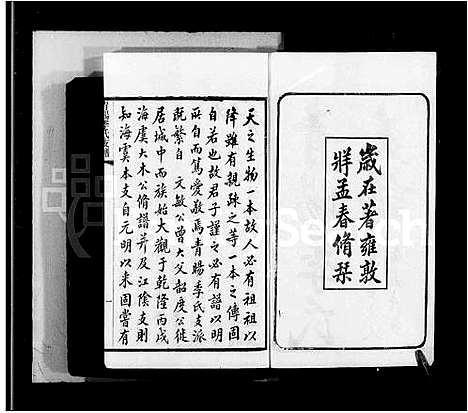 歲在著雍敦
牂孟春脩栞
天之生物一本故人必有祖祖以
降雖有親疎之等一本之傳固
自若也故君子謹之必有譜以明
所自而篤愛敬焉青暘季氏支派
既繁自 文敏公曾大父韶度公徙
居城中而族始大觀于乾隆丙戌
海虞大木公脩譜并及江陰支則
知海虞本支自元明以來固嘗有
一